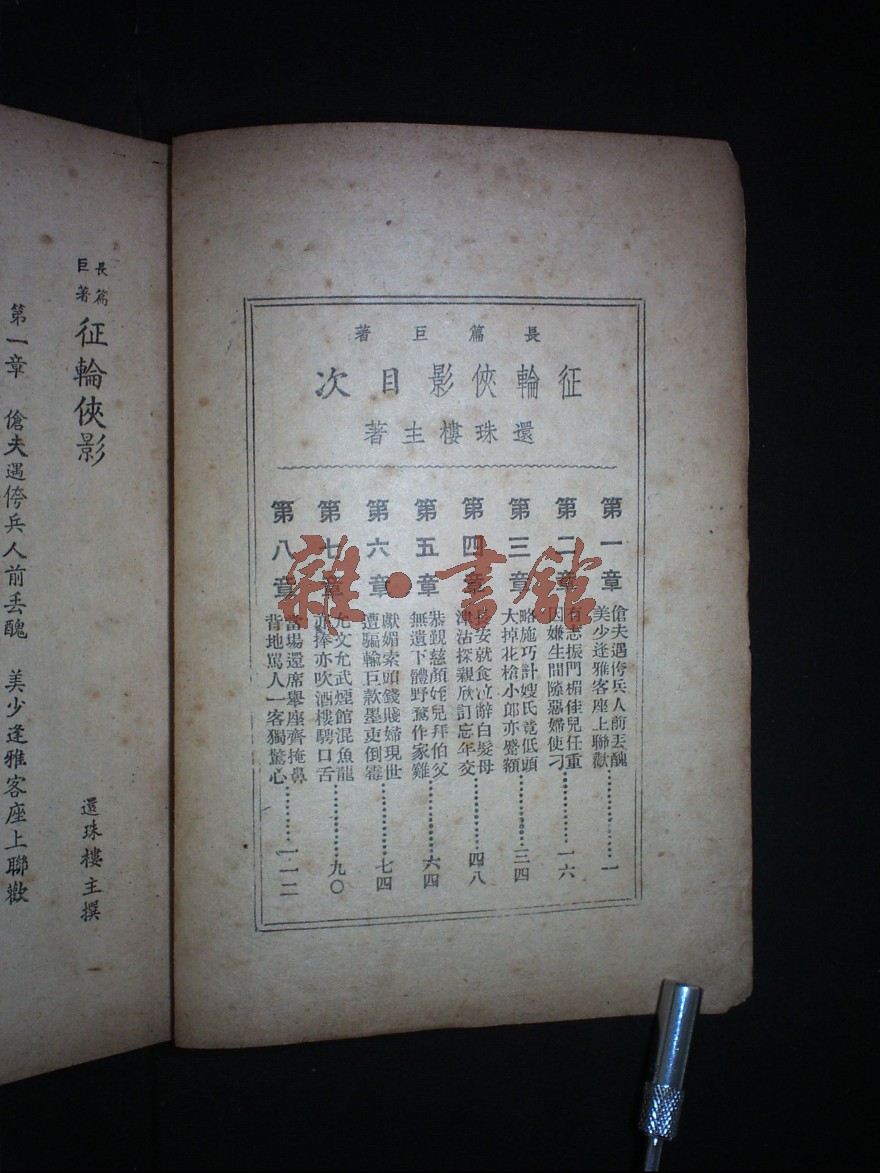 長篇巨著
征輪俠影目次
還珠樓主著
第一章
傖夫遇侉兵人前丟醜
美少逢雅客座上聯歡
一
第二章
有志振門楣佳兒任重
因嫌生間隙惡婦使刁
一六
第三章
略施巧計嫂氏竟低頭
大掉花槍小郎亦蹙額
三四
第四章
長安就食泣辭白髮母
津沽探親欣訂忘年交
四八
第五章
恭覲慈顏姪兒拜伯父
無遺下體野鶩作家雞
六四
第六章
獻媚索頭錢賤婦現世
遭騙輸巨款墨吏倒霉
七四
第七章
允文允武煙館混魚龍
亦捧亦吹酒樓騁口舌
九〇
第八章
當場還席舉座齊掩鼻
背地罵人一客獨驚心
一一二
長篇巨著
征輪俠影
還珠樓主撰
第一章 傖夫遇侉兵人前丟醜 美少逢雅客座上聯歡
雜·書館